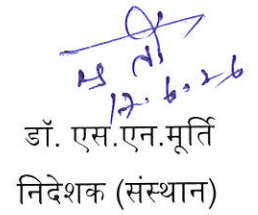 17.6.26
डॉ. एस.एन.मूर्ति
निदेशक (संस्थान)